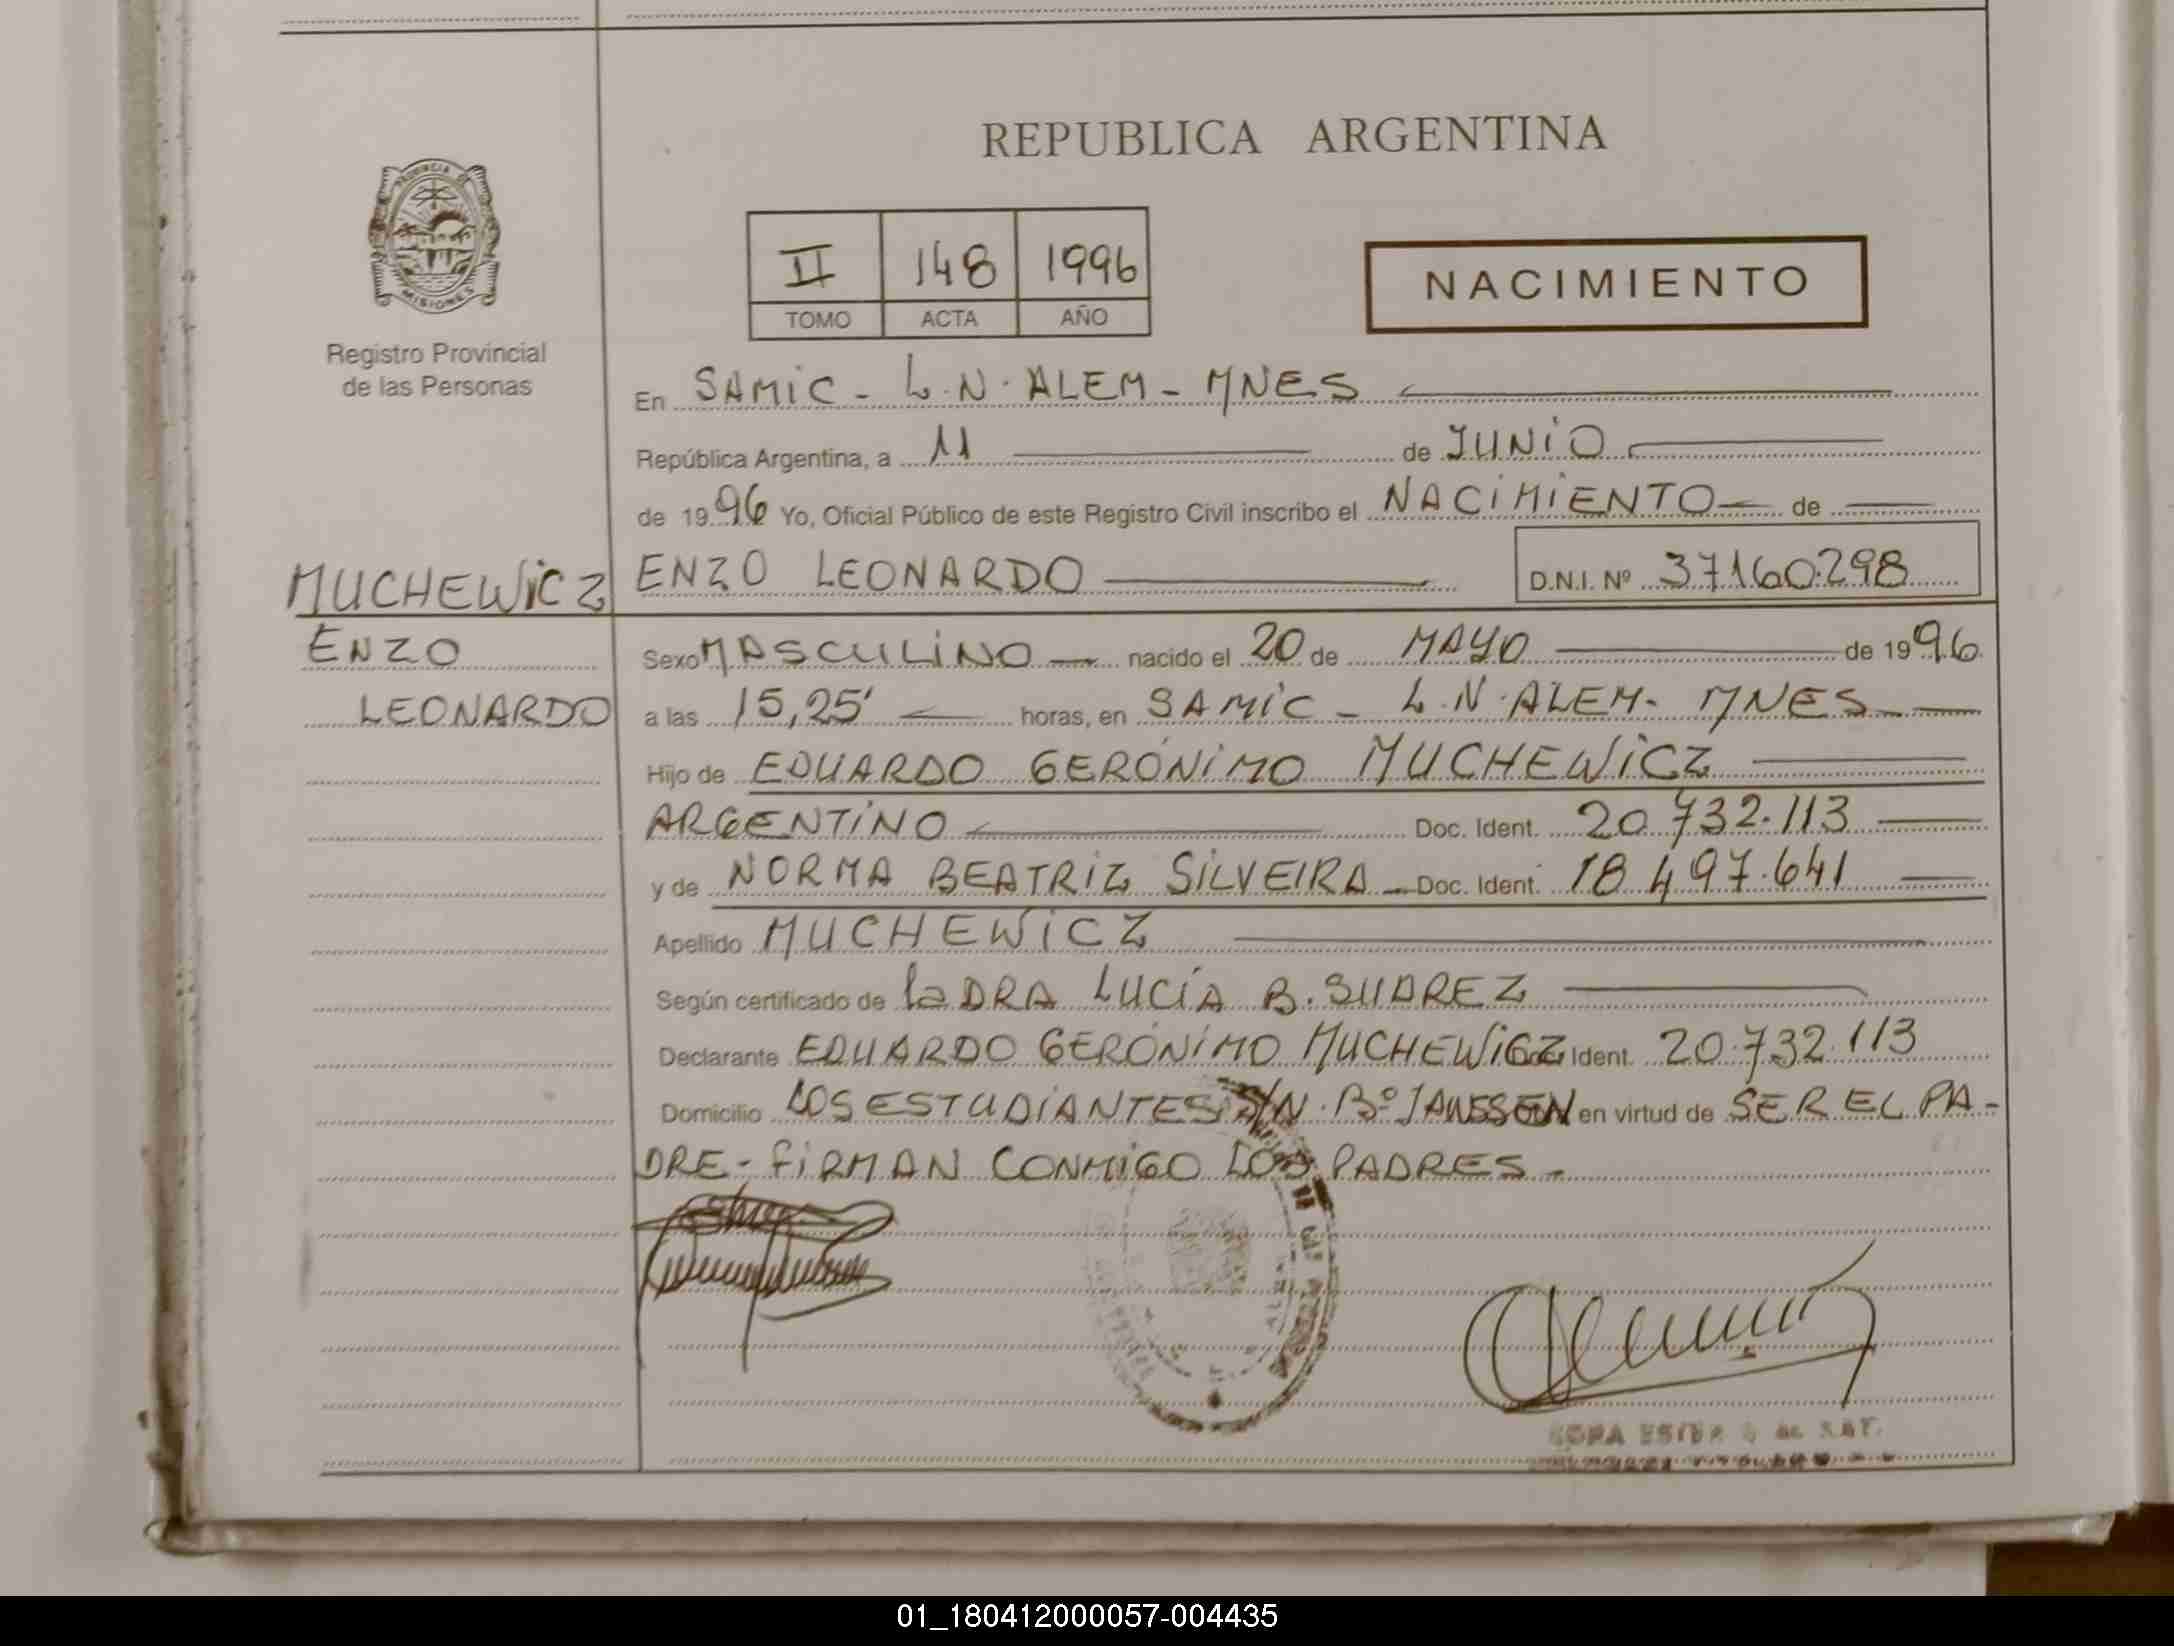 REPUBLICA ARGENTINA
PROVINCIA DE
MISIONES
Registro Provincial
de las Personas
II 148 1996
TOMO ACTA AÑO
NACIMIENTO
En SAMIC - L.N. ALEM - MNES
República Argentina, a 11 de JUNIO
de 1996 Yo, Oficial Público de este Registro Civil inscribo el NACIMIENTO de
MUCHEWICZ ENZO LEONARDO D.N.I. Nº 37160.298
ENZO
LEONARDO
Sexo MASCULINO nacido el 20 de MAYO de 1996
a las 15,25' horas, en SAMIC - L.N. ALEM - MNES
Hijo de EDUARDO GERÓNIMO MUCHEWICZ
ARGENTINO Doc. Ident. 20.732.113
y de NORMA BEATRIZ SILVEIRA - Doc. Ident. 18.497.641
Apellido MUCHEWICZ
Según certificado de la DRA LUCÍA B. SUAREZ
Declarante EDUARDO GERÓNIMO MUCHEWICZ Doc. Ident. 20.732.113
Domicilio LOS ESTUDIANTES S/N. Bº JANSSEN en virtud de SER EL PA-
DRE - FIRMAN CONMIGO LOS PADRES -
01_180412000057-004435